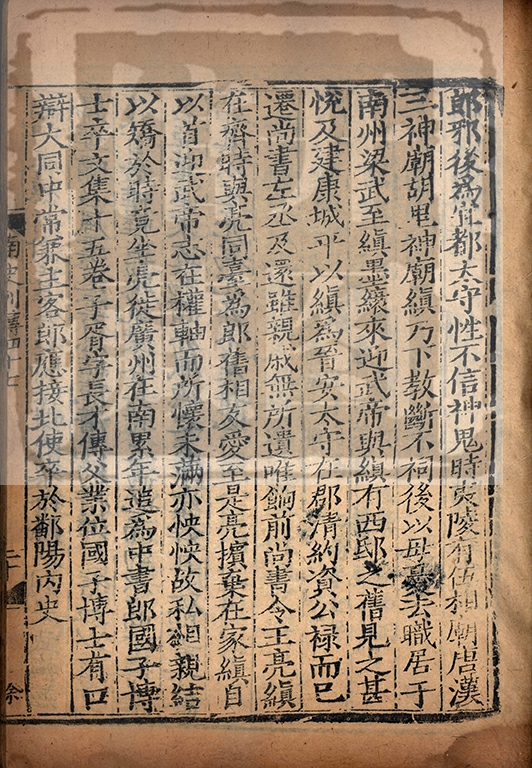 郎邪後為宜都太守性不信神鬼時夷陵有伍相廟唐漢
三神廟胡里神廟縝乃下教斷不祠後以母憂去職居于
南州梁武至縝墨縗來迎武帝與縝有西邸之舊見之甚
悅及建康城平以縝為晉安太守在郡清約資公祿而已
遷尚書左丞及還雖親戚無所遺唯餉前尚書令王亮縝
在齊時與亮同臺為郎舊相友愛至是亮擯棄在家縝自
以首迎武帝志在權軸而所懷未滿亦怏怏故私相親結
以矯於時竟坐亮徙廣州在南累年追為中書郎國子博
士卒文集十五卷子胥字長才傳父業位國子博士有口
辯大同中常兼主客郎應接北使卒於鄱陽內史
南史列傳四十七
二十
徐